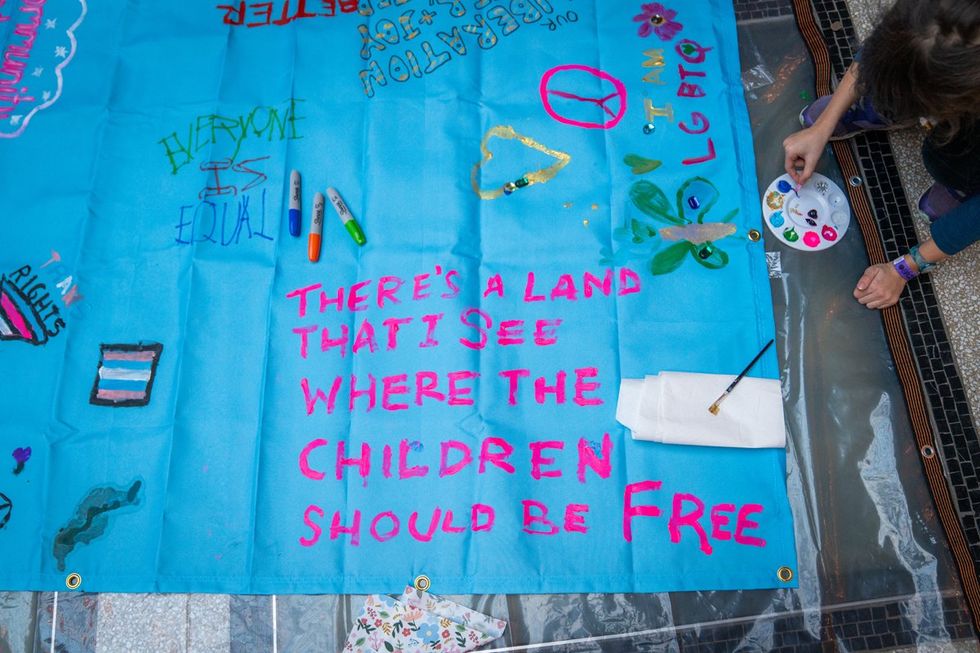 BETTER
LIBERATION
+ JOY
OUR
LIBERATION
I AM
LGBTQ
EVERYONE
IS
EQUAL
I AM
RIGHTS
THERE'S A LAND
THAT I SEE
WHERE THE
CHILDREN
SHOULD BE FREE